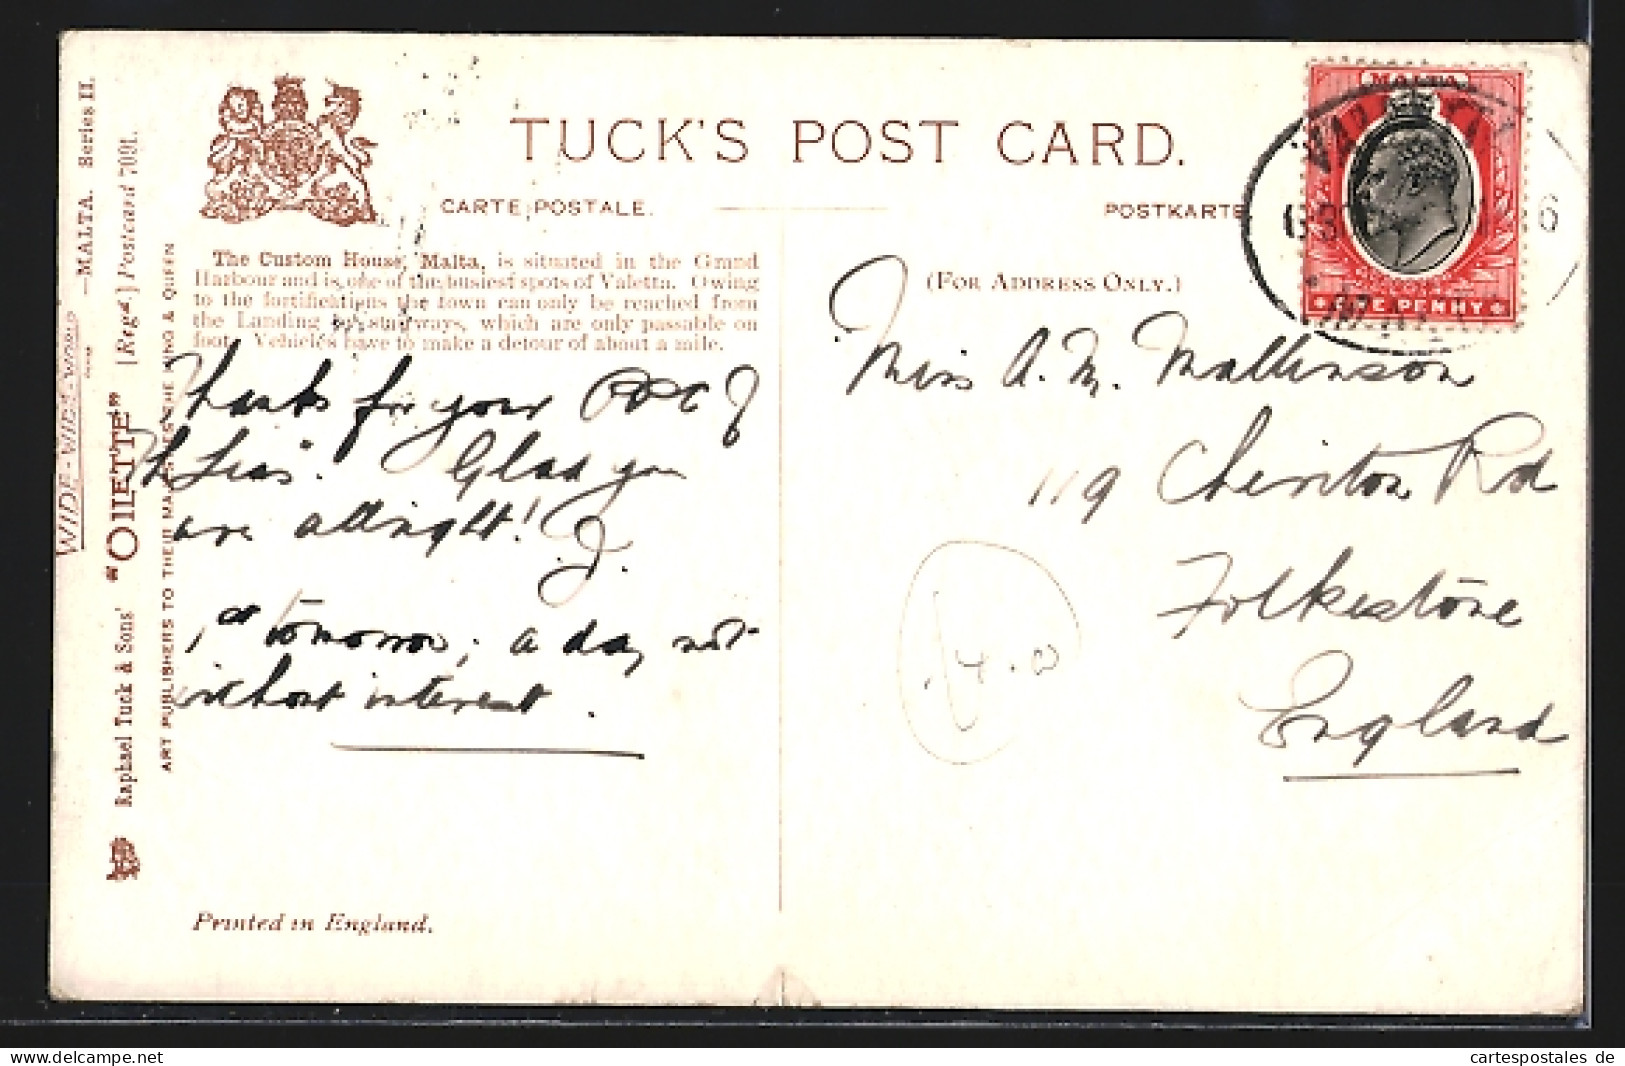 TUCK'S POST CARD.
CARTE POSTALE.
POSTKARTE
WIDE-WIDE-WORLD
—MALTA. Series II.
"OILETTE" [Regd.] Postcard 7091.
Raphael Tuck & Sons'
ART PUBLISHERS TO THEIR MAJESTIES THE KING & QUEEN
The Custom House, Malta, is situated in the Grand
Harbour and is one of the busiest spots of Valetta. Owing
to the fortifications the town can only be reached from
the Landing by stairways, which are only passable on
foot. Vehicles have to make a detour of about a mile.
Thanks for your PPC of
Glad you
are allright! J.
1st tomorrow; a day not
without interest.
Printed in England.
(FOR ADDRESS ONLY.)
MALTA
ONE PENNY
Miss A. M. Mallinson
119 Cheriton Rd
Folkestone
England
14.0
cartespostales de